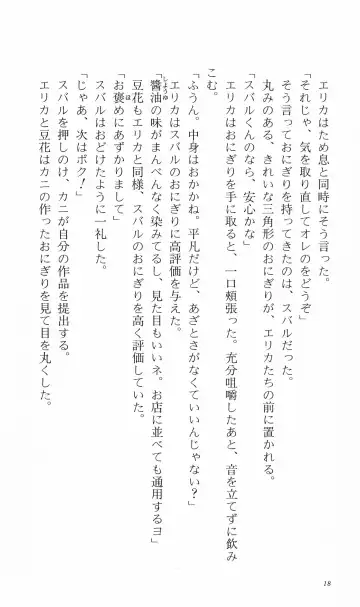 エリカはため息と同時にそう言った。
「それじゃ、気を取り直してオレのをどうぞ」
そう言っておにぎりを持ってきたのは、スバルだった。
丸みのある、きれいな三角形のおにぎりが、エリカたちの前に置かれる。
「スバルくんのなら、安心かな」
エリカはおにぎりを手に取ると、一口頬張った。充分咀嚼したあと、音を立てずに飲み
こむ。
「ふうん。中身はおかかね。平凡だけど、あざとさがなくていいんじゃない？」
エリカはスバルのおにぎりに高評価を与えた。
「醬油の味がまんべんなく染みてるし、見た目もいいネ。お店に並べても通用するヨ」
しょうゆ
豆花もエリカと同様、スバルのおにぎりを高く評価していた。
「お褒めにあずかりまして」
ほ
スバルはおどけたように一礼した。
「じゃあ、次はボク！」
スバルを押しのけ、カニが自分の作品を提出する。
エリカと豆花はカニの作ったおにぎりを見て目を丸くした。
18